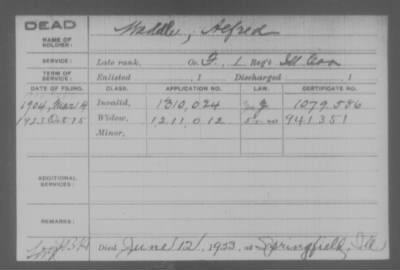 DEAD
NAME OF SOLDIER: Waddle, Alfred
SERVICE: Late rank, Co. F, 1 Reg't Ill Cav
TERM OF SERVICE: Enlisted , 1 Discharged , 1
DATE OF FILING. CLASS. APPLICATION NO. LAW. CERTIFICATE NO.
1904, Mar 14 Invalid, 1310,024 1079,586
1923 Oct 15 Widow, 1211,012 941351
Minor,
ADDITIONAL SERVICES:
REMARKS:
Died June 12, 1923, at Springfield, Ill